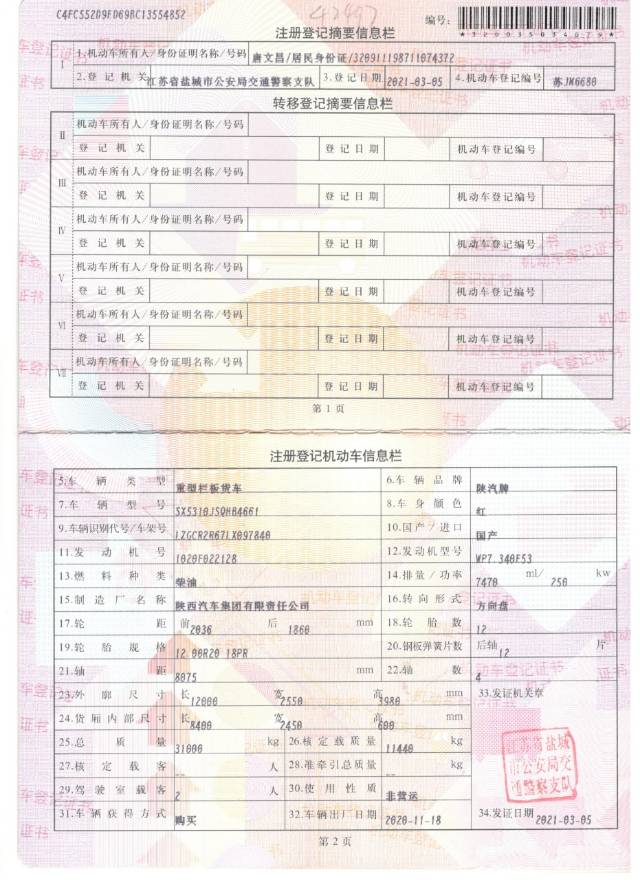 C4FC552D9FD69BC13554852
42497
编号:
*320035034079*
注册登记摘要信息栏
I 1.机动车所有人/身份证明名称/号码 唐文昌/居民身份证/320911198711074372
2.登记机关 江苏省盐城市公安局交通警察支队 3.登记日期 2021-03-05 4.机动车登记编号 苏JM6680
转移登记摘要信息栏
II 机动车所有人/身份证明名称/号码
登记机关 登记日期 机动车登记编号
III 机动车所有人/身份证明名称/号码
登记机关 登记日期 机动车登记编号
IV 机动车所有人/身份证明名称/号码
登记机关 登记日期 机动车登记编号
V 机动车所有人/身份证明名称/号码
登记机关 登记日期 机动车登记编号
VI 机动车所有人/身份证明名称/号码
登记机关 登记日期 机动车登记编号
VII 机动车所有人/身份证明名称/号码
登记机关 登记日期 机动车登记编号
第1页
注册登记机动车信息栏
5.车辆类型 重型栏板货车 6.车辆品牌 陕汽牌
7.车辆型号 SX5310JSQHB4661 8.车身颜色 红
9.车辆识别代号/车架号 LZGCR2R67LX097840 10.国产/进口 国产
11.发动机号 1020F022128 12.发动机型号 WP7.340E53
13.燃料种类 柴油 14.排量/功率 7470 ml/ 250 kw
15.制造厂名称 陕西汽车集团有限责任公司 16.转向形式 方向盘
17.轮距 前 2036 后 1860 mm 18.轮胎数 12
19.轮胎规格 12.00R20 18PR 20.钢板弹簧片数 后轴 12 片
21.轴距 8075 mm 22.轴数 4
23.外廓尺寸 长 12000 宽 2550 高 3980 mm 33.发证机关章
24.货厢内部尺寸 长 8400 宽 2450 高 600 mm
25.总质量 31000 kg 26.核定载质量 11440 kg
27.核定载客 -- 人 28.准牵引总质量 -- kg
29.驾驶室载客 2 人 30.使用性质 非营运
31.车辆获得方式 购买 32.车辆出厂日期 2020-11-18 34.发证日期 2021-03-05
江苏省盐城
市公安局交
通警察支队
第2页